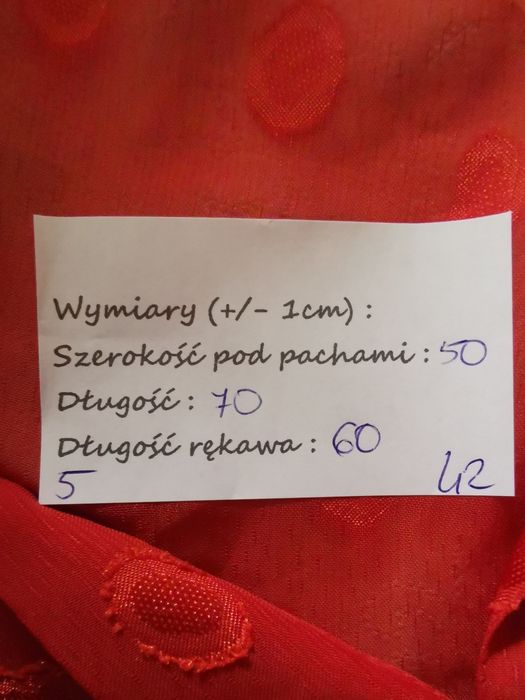 Wymiary (+/- 1cm) :
Szerokość pod pachami : 50
Długość : 70
Długość rękawa : 60
5 42